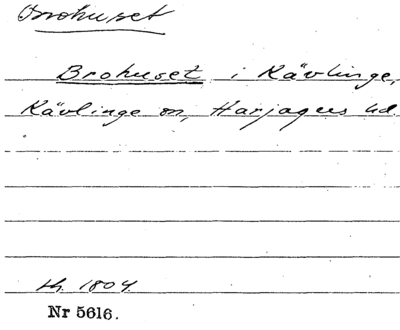 Brohuset
Brohuset i Kävlinge,
Kävlinge sn, Harjagers hd.
th. 1804.
Nr 5616.